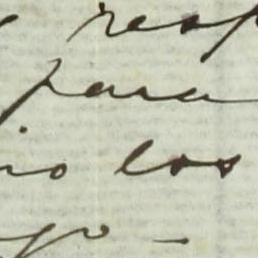 resp
para
io los
go -